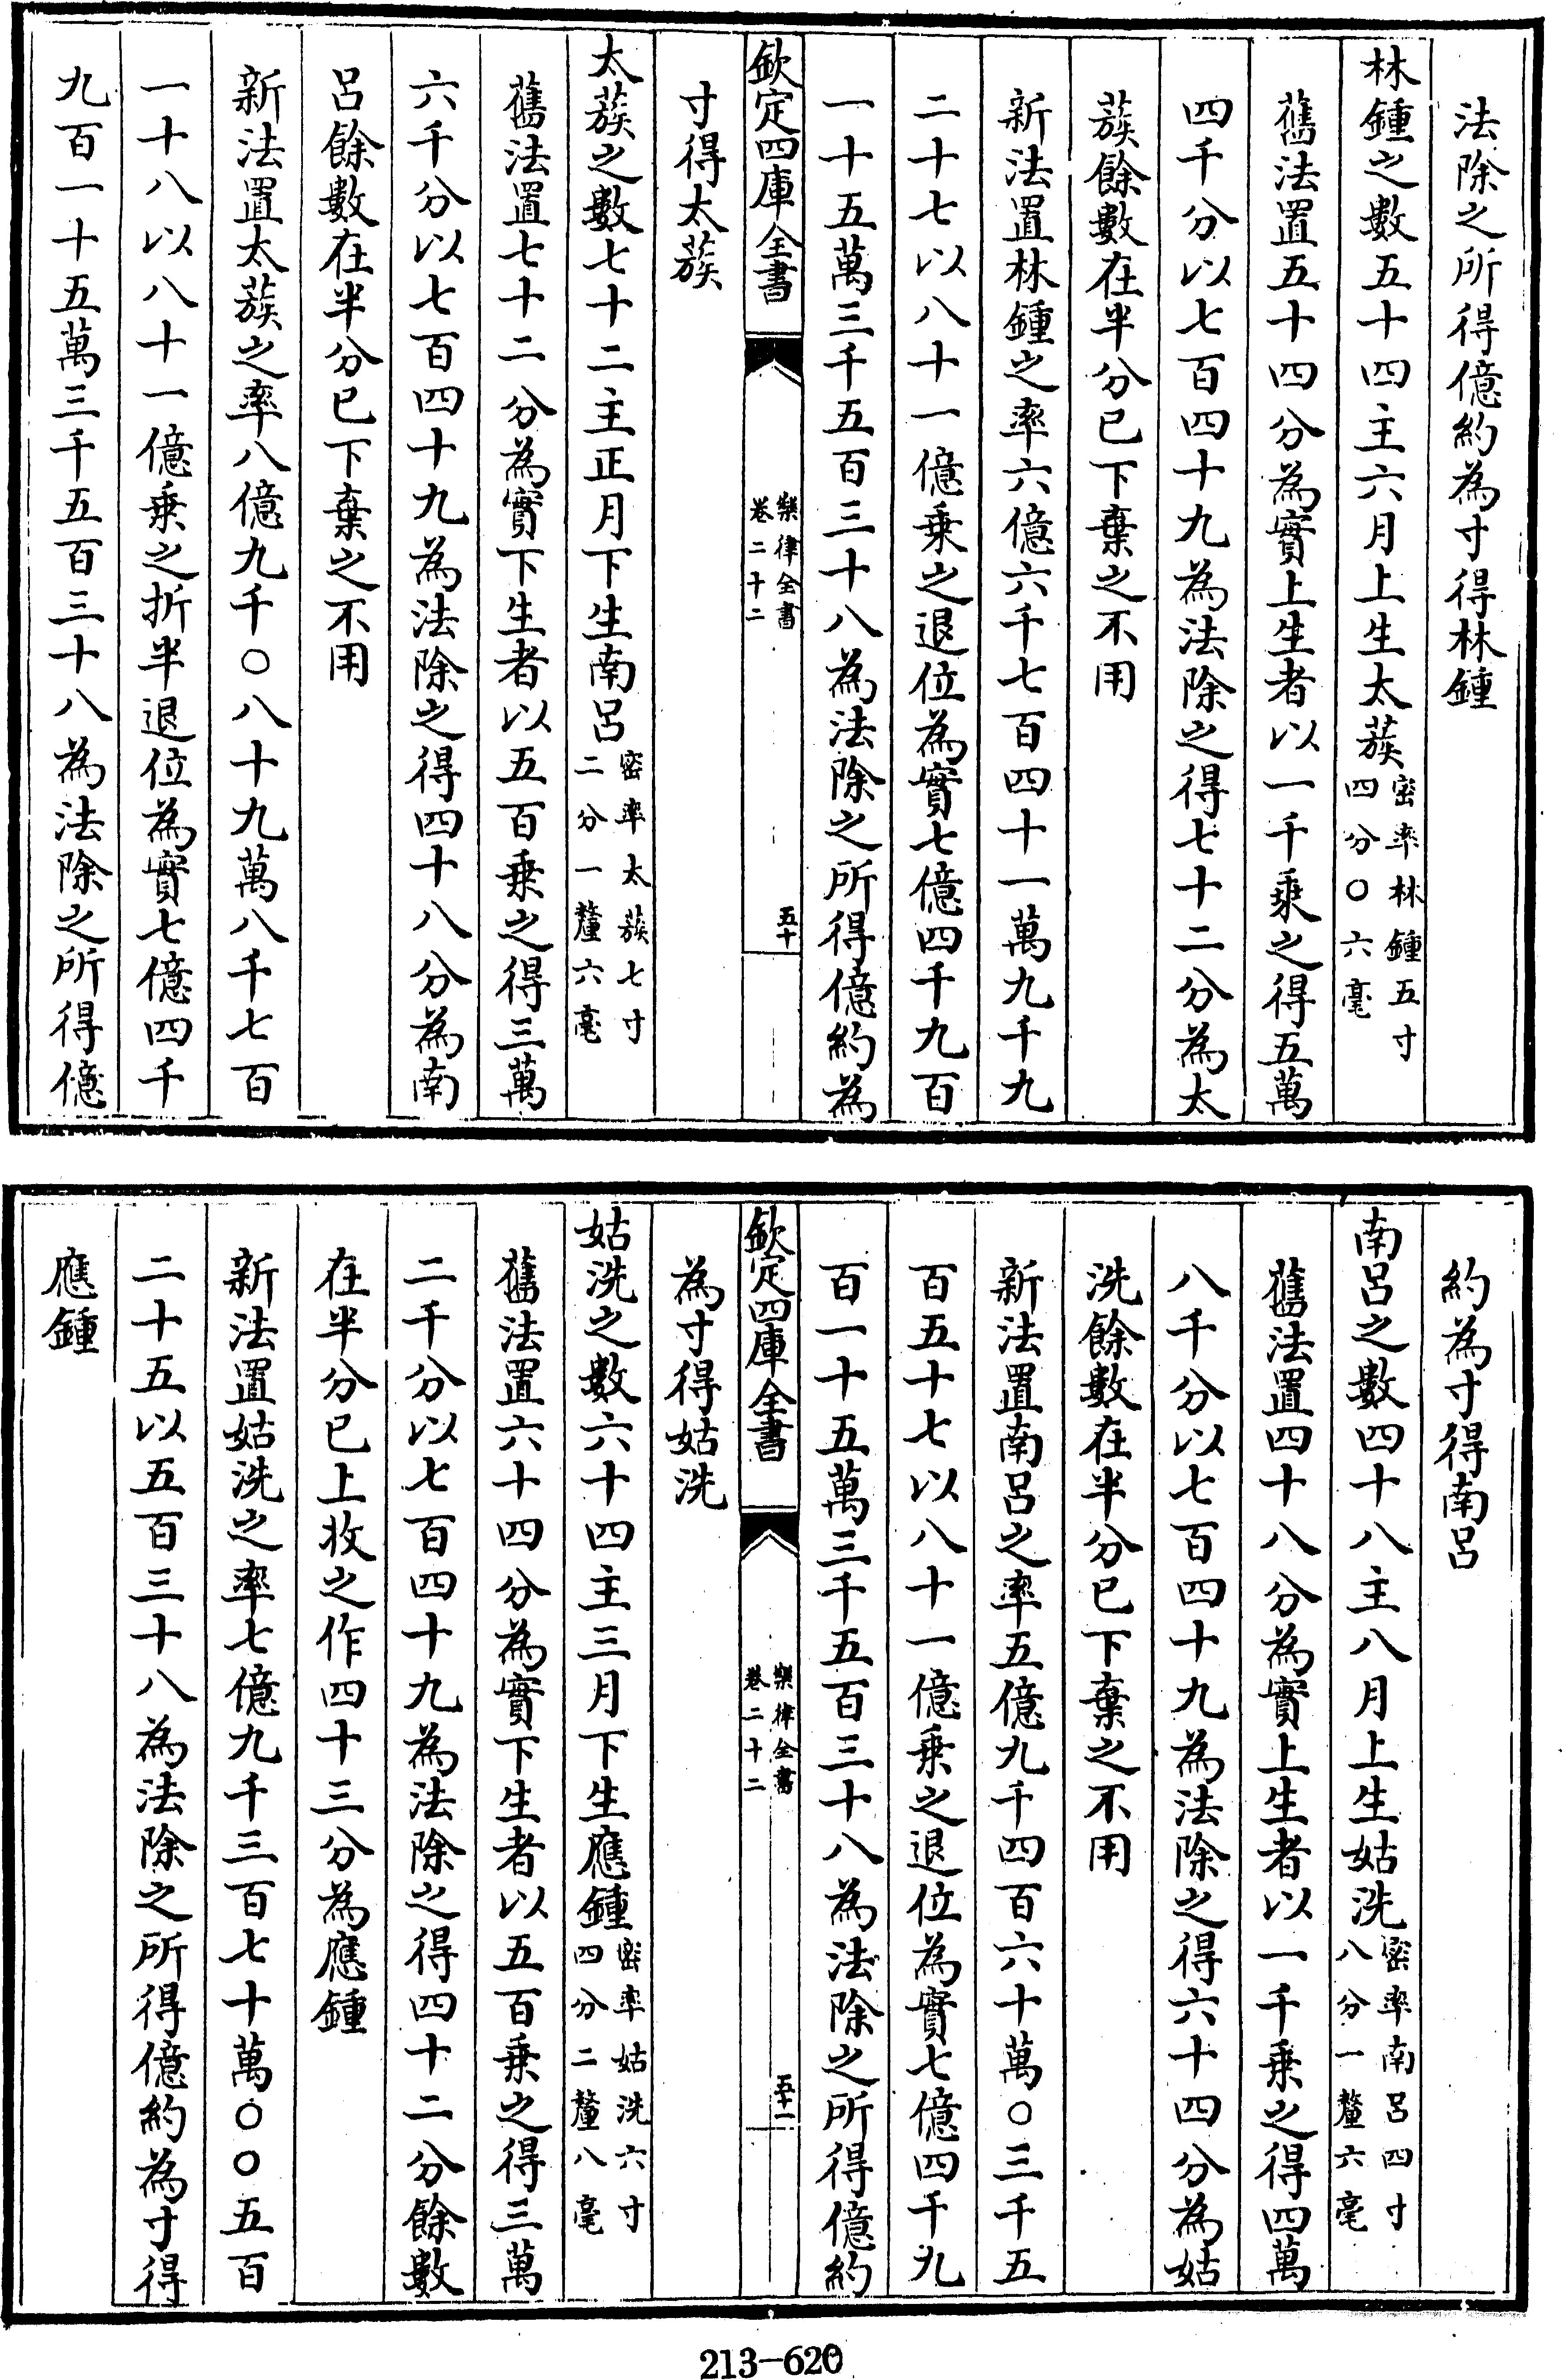 法除之所得億約為寸得林鍾
林鍾之數五十四主六月上生太蔟密率林鍾五寸四分〇六毫
舊法置五十四分為實上生者以一千乗之得五萬
四千分以七百四十九為法除之得七十二分為太
蔟餘數在半分已下棄之不用
新法置林鍾之率六億六千七百四十一萬九千九
二十七以八十一億乗之退位為實七億四千九百
一十五萬三千五百三十八為法除之所得億約為
欽定四庫全書
樂律全書
卷二十二
五十
寸得太蔟
太蔟之數七十二主正月下生南呂密率太蔟七寸二分一釐六毫
舊法置七十二分為實下生者以五百乗之得三萬
六千分以七百四十九為法除之得四十八分為南
呂餘數在半分已下棄之不用
新法置太蔟之率八億九千〇八十九萬八千七百
一十八以八十一億乗之折半退位為實七億四千
九百一十五萬三千五百三十八為法除之所得億
約為寸得南呂
南呂之數四十八主八月上生姑洗密率南呂四寸八分一釐六毫
舊法置四十八分為實上生者以一千乗之得四萬
八千分以七百四十九為法除之得六十四分為姑
洗餘數在半分已下棄之不用
新法置南呂之率五億九千四百六十萬〇三千五
百五十七以八十一億乗之退位為實七億四千九
百一十五萬三千五百三十八為法除之所得億約
欽定四庫全書
樂律全書
卷二十二
五十一
為寸得姑洗
姑洗之數六十四主三月下生應鍾密率姑洗六寸四分二釐八毫
舊法置六十四分為實下生者以五百乗之得三萬
二千分以七百四十九為法除之得四十二分餘數
在半分已上收之作四十三分為應鍾
新法置姑洗之率七億九千三百七十萬〇〇五百
二十五以五百三十八為法除之所得億約為寸得
應鍾
213-620